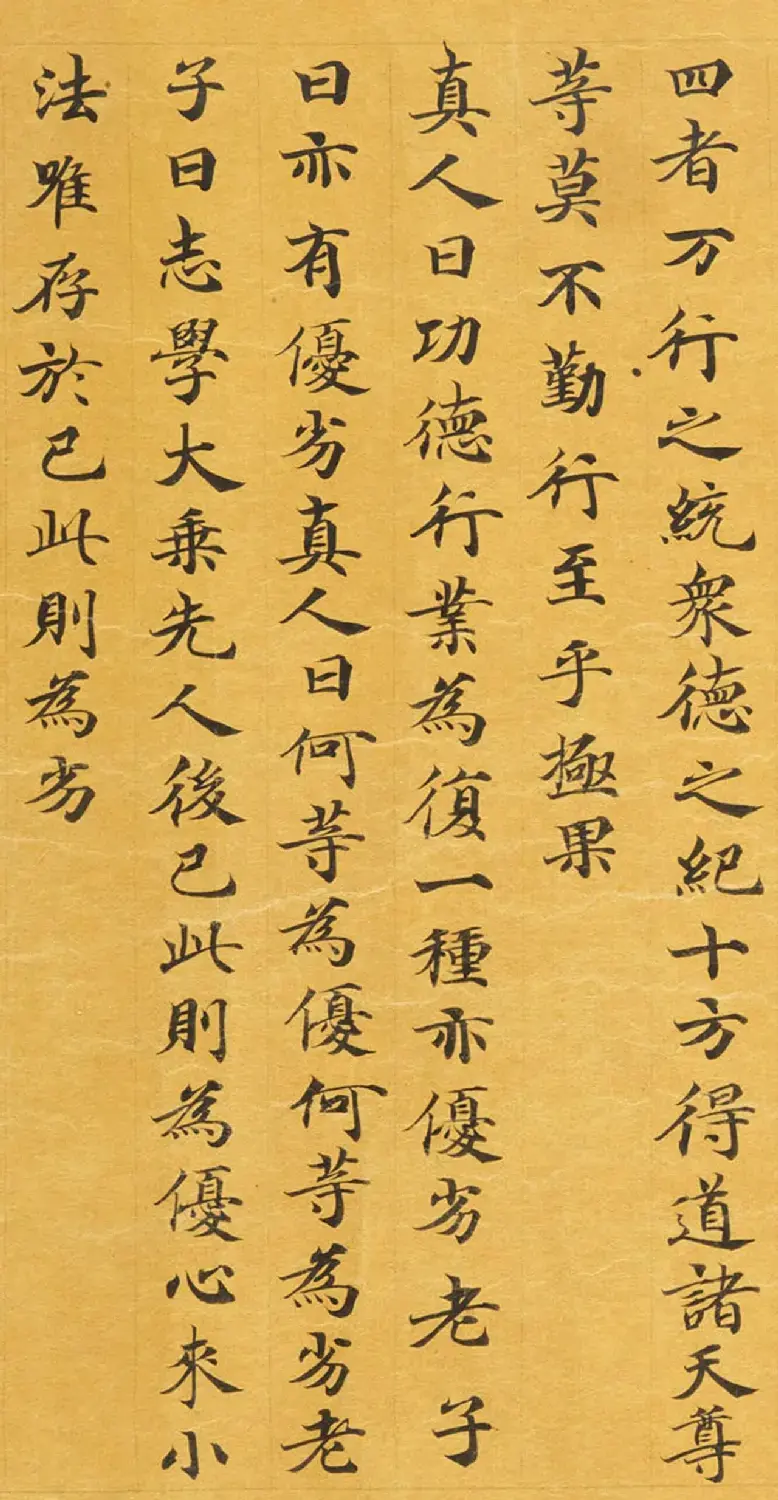 四者万行之統衆德之紀十方得道諸天尊
䓁莫不勤行至乎極果
真人曰功德行業為復一種亦優劣老子
曰亦有優劣真人曰何䓁為優何䓁為劣老
子曰志學大乗先人後己此則為優心來小
法唯存於己此則為劣